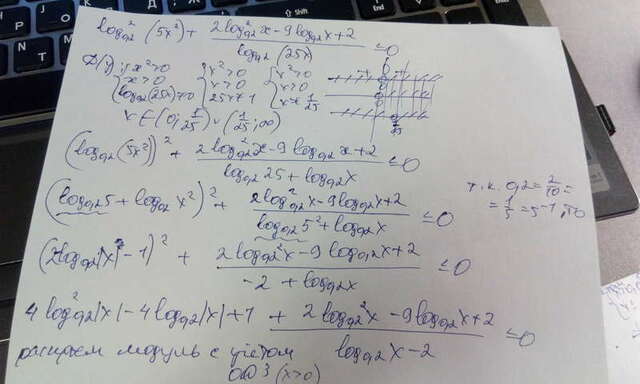 log²₀,₂(5x²) + (2log²₀,₂x − 9log₀,₂x + 2)/(log₀,₂(25x)) ≤ 0
x² > 0 { x² > 0 { x² > 0
x > 0 x > 0 x > 0
log₀,₂(25x) ≠ 0 25x ≠ 1 x ≠ 1/25
x ∈ (0; 1/25) ∪ (1/25; ∞)
(log₀,₂(5x²))² + (2log²₀,₂x − 9log₀,₂x + 2)/(log₀,₂25 + log₀,₂x) ≤ 0
(log₀,₂5 + log₀,₂x²)² + (2log²₀,₂x − 9log₀,₂x + 2)/(log₀,₂5² + log₀,₂x) ≤ 0
т.к. 0,2 = 2/10 =
= 1/5 = 5⁻¹, то
(2log₀,₂|x| − 1)² + (2log²₀,₂x − 9log₀,₂x + 2)/(−2 + log₀,₂x) ≤ 0
4log²₀,₂|x| − 4log₀,₂|x| + 1 + (2log₀,₂²x − 9log₀,₂x + 2)/(log₀,₂x − 2) ≤ 0
раскроем модуль с учётом
ОДЗ (x>0)